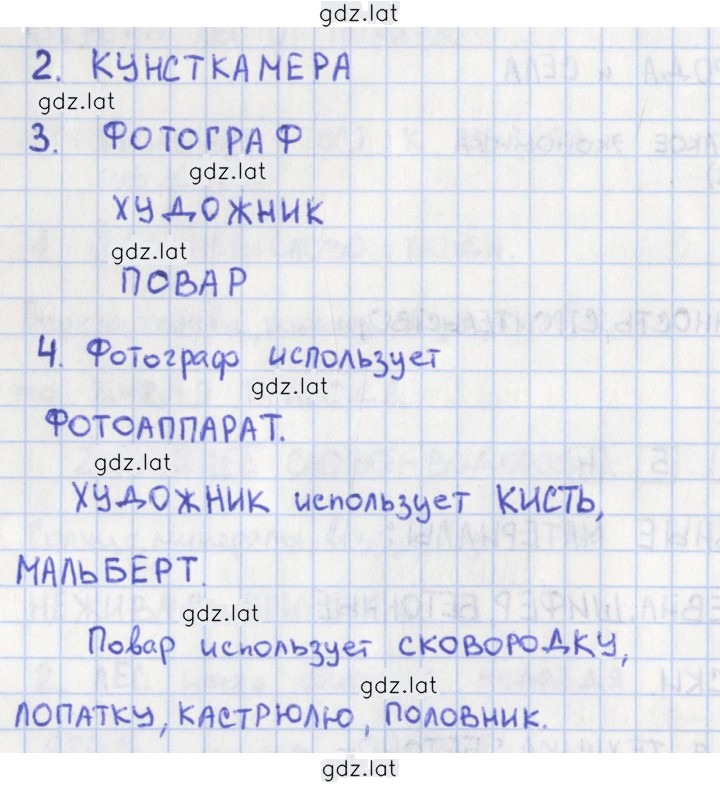 gdz.lat
2. КУНСТКАМЕРА
gdz.lat
3. ФОТОГРАФ
gdz.lat
ХУДОЖНИК
gdz.lat
ПОВАР
4. Фотограф использует
gdz.lat
ФОТОАППАРАТ.
gdz.lat
ХУДОЖНИК использует КИСТЬ,
МАЛЬБЕРТ.
gdz.lat
Повар использует СКОВОРОДКУ,
gdz.lat
ЛОПАТКУ, КАСТРЮЛЮ, ПОЛОВНИК.
gdz.lat